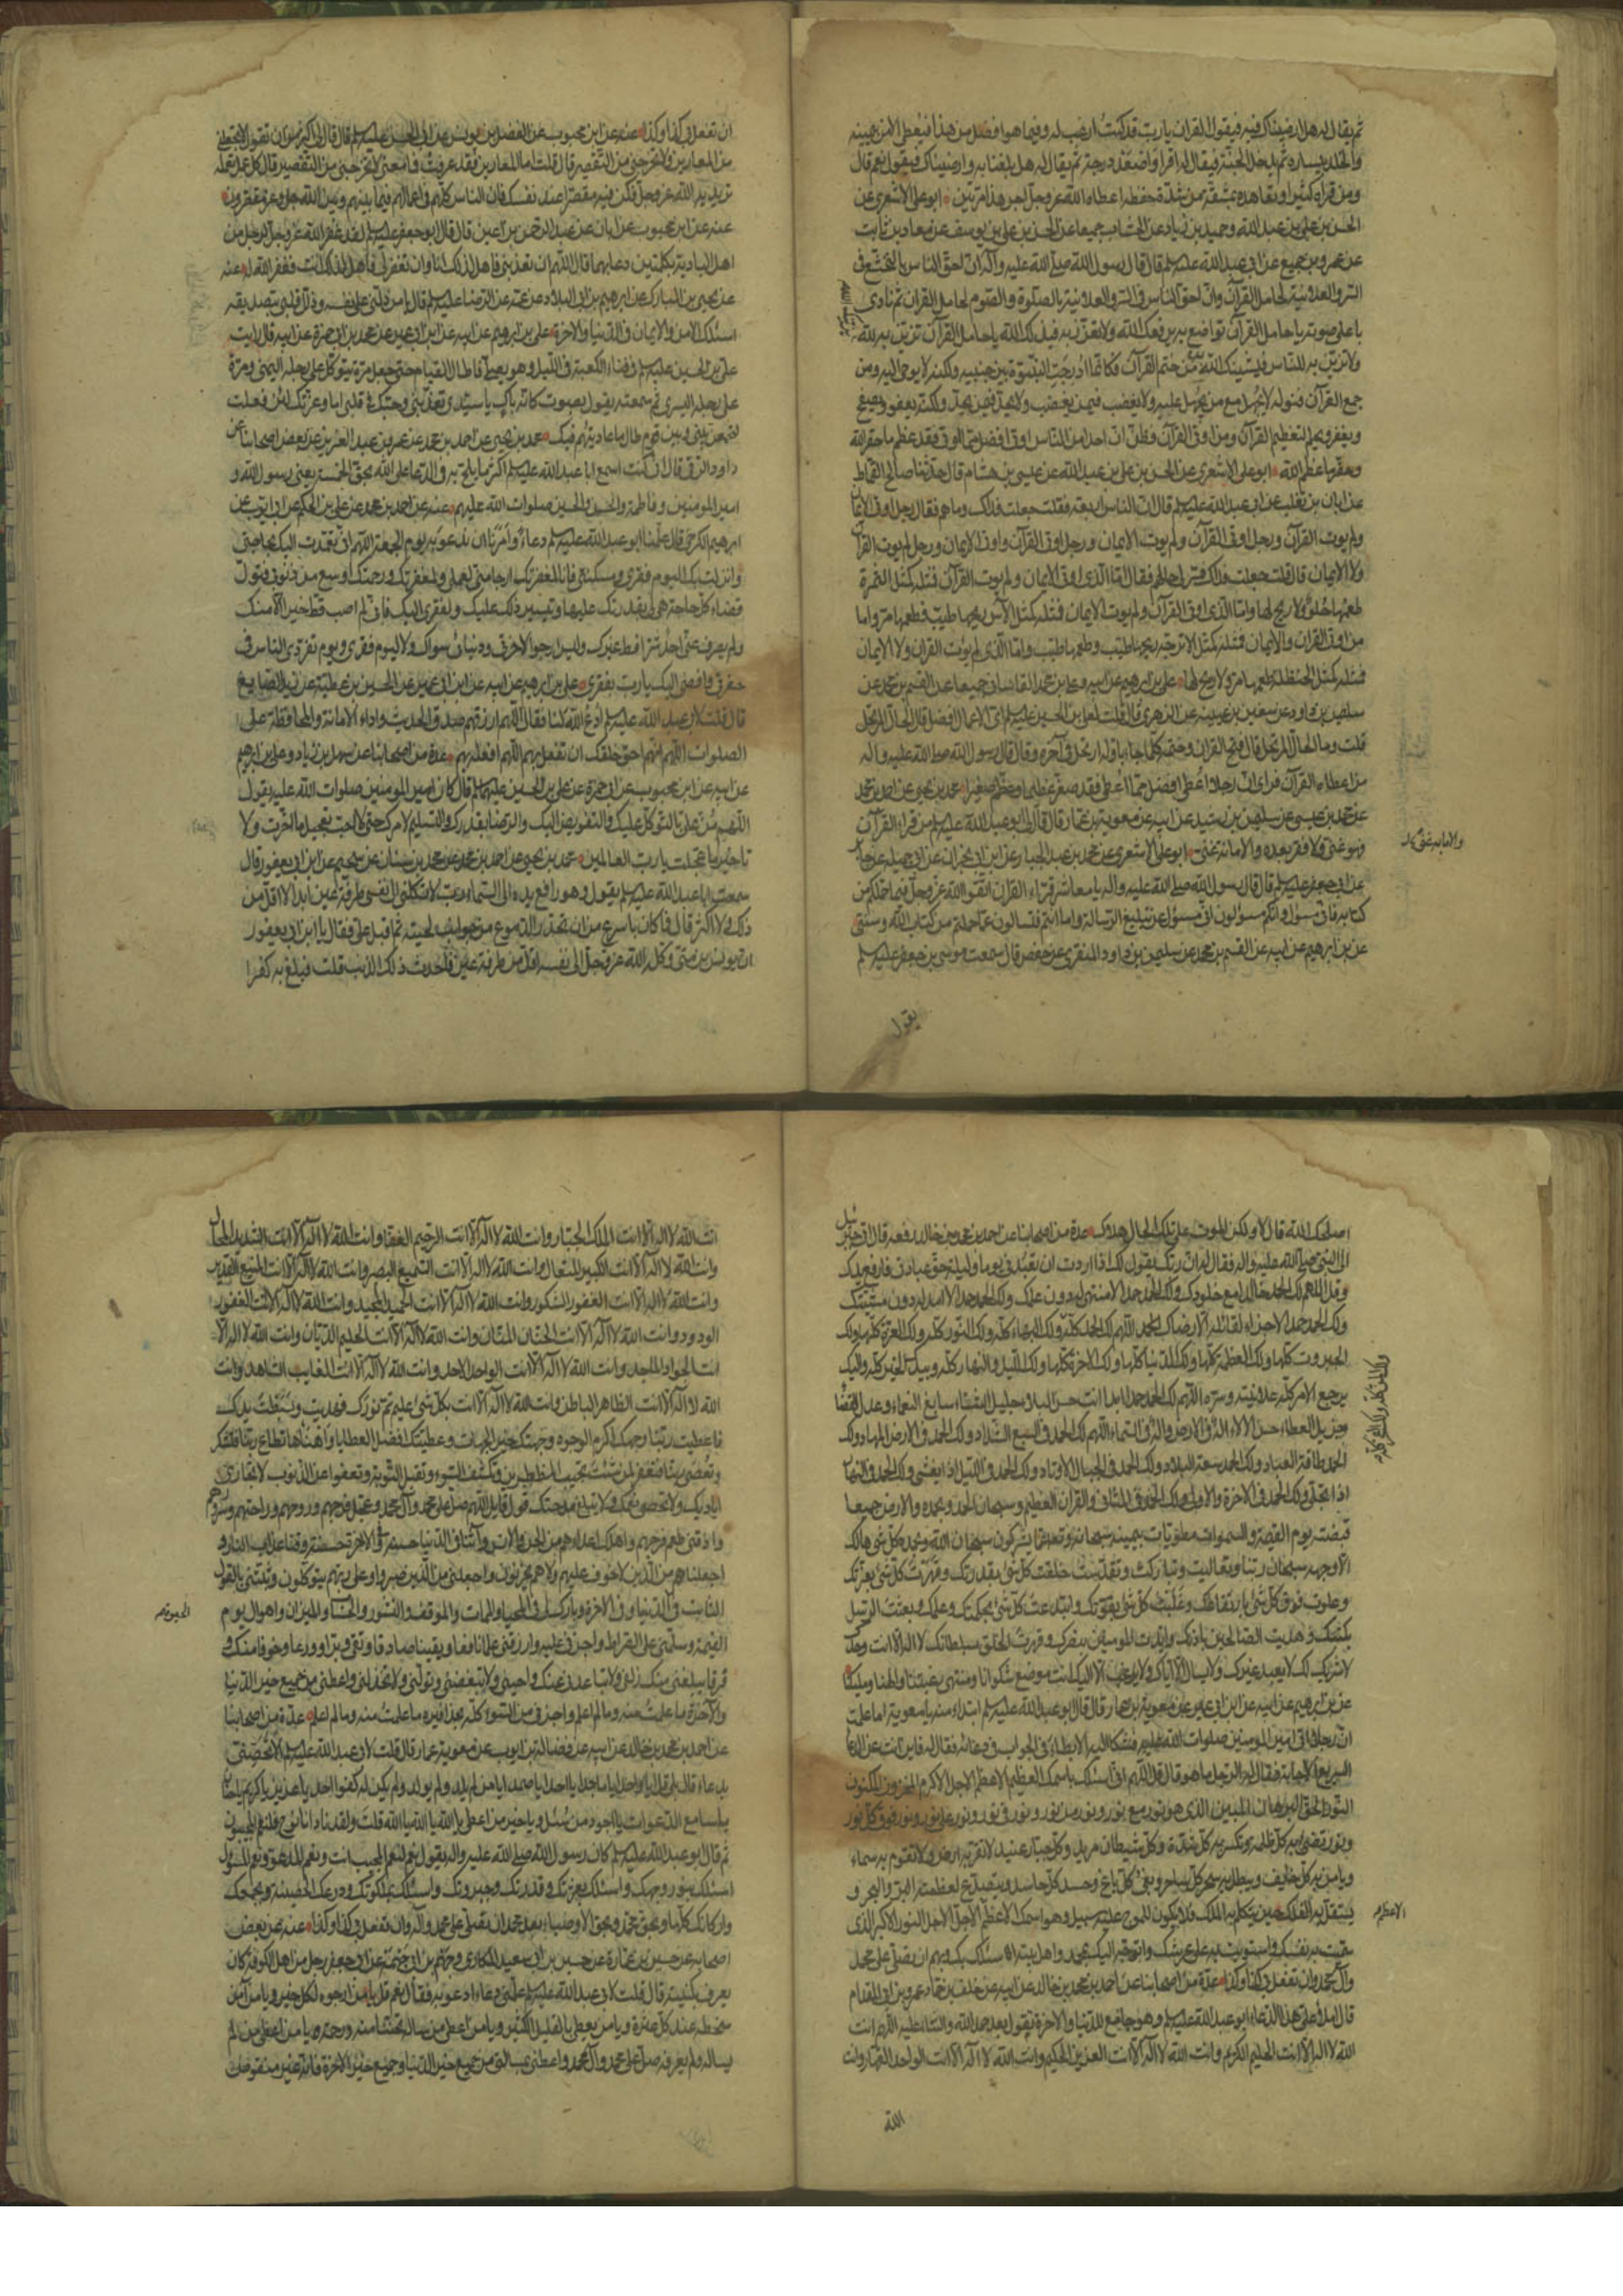 ثم يقال له هل ارضيناك فيه فيقول القران يا رب قد كنت ارغب له فيما هو افضل من هذا فيعطى الامن بيمينه
والخلد بيساره ثم يدخل الجنة فيقال له اقرا واصعد درجة ثم يقال له هل بلغنا به وارضيناك فيقول نعم قال
ومن قراه كثيرا وتعاهده بمشقة من شدة حفظه اعطاه الله عز وجل اجر هذا مرتين ابو علي الاشعري عن
الحسن بن علي بن عبد الله وحميد بن زياد عن الخشاب جميعا عن الحسن بن علي بن يوسف عن معاذ بن ثابت
عن عمرو بن جميع عن ابي عبد الله عليه السلم قال قال رسول الله صلى الله عليه وآله ان احق الناس بالتخشع في
السر والعلانية لحامل القرآن وان احق الناس في السر والعلانية بالصلوة والصوم لحامل القران ثم نادى
باعلى صوته يا حامل القرآن تواضع به يرفعك الله ولا تعزز به فيذلك الله يا حامل القرآن تزين به لله
ولا تزين به للناس فيشينك الله من ختم القرآن فكانما ادرجت النبوة بين جنبيه ولكنه لا يوحى اليه ومن
جمع القرآن فنوله لا يجهل مع من يجهل عليه ولا يغضب فيمن يغضب ولا يحد فيمن يحد ولكنه يعفو ويصفح
ويغفر ويحلم لتعظيم القرآن ومن اوتي القرآن وظن ان احدا من الناس اوتي افضل مما اوتي فقد عظم ما حقر الله
وحقر ما عظم الله ابو علي الاشعري عن الحسن بن علي بن عبد الله عن عبيس بن هشام قال حدثنا صالح القماط
عن ابان بن تغلب عن ابي عبد الله عليه السلم قال الناس اربعة فقلت جعلت فداك وما هم فقال رجل اوتي الايمان
ولم يوت القرآن ورجل اوتي القرآن ولم يوت الايمان ورجل اوتي القرآن واوتي الايمان ورجل لم يوت القرآن
ولا الايمان قال قلت جعلت فداك فسر لي حالهم فقال اما الذي اوتي الايمان ولم يوت القرآن فمثله كمثل التمرة
طعمها حلو ولا ريح لها واما الذي اوتي القرآن ولم يوت الايمان فمثله كمثل الآس ريحها طيب وطعمها مر واما
من اوتي القران والايمان فمثله كمثل الاترجة ريحها طيب وطعمها طيب واما الذي لم يوت القران ولا الايمان
فمثله كمثل الحنظلة طعمها مر ولا ريح لها علي بن ابرهيم عن ابيه وعلي بن محمد القاساني جميعا عن القسم بن محمد عن
سليمن بن داود عن سفين بن عيينه عن الزهري قال قلت لعلي بن الحسين عليه السلم اي الاعمال افضل قال الحال المرتحل
قلت وما الحال المرتحل قال فتح القران وختمه كلما جاء باوله ارتحل في آخره وقال قال رسول الله صلى الله عليه وآله
من اعطاه القرآن فراى ان رجلا اعطي افضل مما اعطي فقد صغر عظيما وعظم صغيرا محمد بن يحيى عن احمد بن محمد
عن محمد بن عيسى عن سليمن بن رشيد عن ابيه عن معوية بن عمار قال قال لي ابو عبد الله عليه السلم من قراء القرآن
فهو غني ولا فقر بعده والا ما به غنى ابو علي الاشعري عن محمد بن عبد الجبار عن ابن ابي نجران عن ابي جميله عن جابر
عن ابي جعفر عليه السلم قال قال رسول الله صلى الله عليه وآله يا معاشر قراء القران اتقوا الله عز وجل فيما حملكم من
كتابه فاني مسؤل وانكم مسؤلون اني مسؤل عن تبليغ الرسالة واما انتم فتسالون عما حملتم من كتاب الله وسنتي
علي بن ابرهيم عن ابيه عن القسم بن محمد عن سليمن بن داود المنقري عن حفص قال سمعت موسى بن جعفر عليه السلم
يقول
ان تفعل بي كذا وكذا عنه عن ابن محبوب عن الفضل بن يونس عن ابي الحسن عليه السلم قال قال لي اكثر من ان تقول لا تجعلني
من المعارين ولا تخرجني من التقصير قال قلت اما المعارين فقد عرفت فما معنى لا تخرجني من التقصير قال كل عمل تعمله
تريد به الله عز وجل فكن فيه مقصرا عند نفسك فان الناس كلهم في اعمالهم فيما بينهم وبين الله جل وعز مقصرون
عنه عن ابن محبوب عن ابان عن عبد الرحمن بن اعين قال قال ابو جعفر عليه السلم لقد غفر الله عز وجل لرجل من
اهل البادية بكلمتين دعا بهما قال اللهم ان تعذبني فاهل لذلك انا وان تغفر لي فاهل لذلك انت فغفر الله له عنه
عن يحيى بن المبارك عن ابرهيم بن ابي البلاد عن عمه عن الرضا عليه السلم قال يا من دلني على نفسه وذلل قلبي بتصديقه
اسئلك الامن والايمان في الدنيا والاخرة علي بن ابرهيم عن ابيه عن ابن ابي عمير عن محمد بن ابي حمزة عن ابيه قال رايت
علي بن الحسين عليه السلم في فناء الكعبة في الليل وهو يصلي فاطال القيام حتى جعل مرة يتوكا على رجله اليمنى ومرة
على رجله اليسرى ثم سمعته يقول بصوت كانه باك يا سيدي تعذبني وحبك في قلبي اما وعزتك لئن فعلت
لتجمعن بيني وبين قوم طال ما عاديتهم فيك محمد بن يحيى عن احمد بن محمد عن عمر بن عبد العزيز عن بعض اصحابنا عن
داود الرقي قال اني كنت اسمع ابا عبد الله عليه السلم اكثر ما يلح به في الدعا على الله بحق الخمسة يعني رسول الله و
امير المومنين وفاطمة والحسن والحسين صلوات الله عليهم عنه عن احمد بن محمد عن علي بن الحكم عن ابي ايوب عن
ابرهيم الكرخي قال علمنا ابو عبد الله عليه السلم دعاء وامرنا ان ندعو به يوم الجمعة اللهم اني تعمدت اليك بحاجتي
وانزلت بك اليوم فقري ومسكنتي فانا لمغفرتك ارجا مني لعملي ولمغفرتك ورحمتك اوسع من ذنوبي فتول
قضاء كل حاجة هي لي بقدرتك عليها وتيسير ذلك عليك ولفقري اليك فاني لم اصب خيرا قط الا منك
ولم يصرف عني احد شرا قط غيرك وليس ارجو لآخرتي ودنياي سواك ولا ليوم فقري ويوم تفردي الناس في
حفرتي وافضي اليك يا رب بفقري علي بن ابرهيم عن ابيه عن ابن ابي عمير عن الحسين بن عطية عن زيد الصايغ
قال قلت لابي عبد الله عليه السلم ادع الله لنا فقال اللهم ارزقهم صدق الحديث واداء الامانة والمحافظة على
الصلوات اللهم انهم احق خلقك ان تفعل بهم اللهم افعله بهم عدة من اصحابنا عن سهل بن زياد وعلي بن ابرهيم
عن ابيه عن ابن محبوب عن ابي حمزة عن علي بن الحسين عليهما السلم قال كان امير المومنين صلوات الله عليه يقول
اللهم من علي بالتوكل عليك والتفويض اليك والرضا بقدرك والتسليم لامرك حتى لا احب تعجيل ما اخرت ولا
تاخير ما عجلت يا رب العالمين محمد بن يحيى عن احمد بن محمد عن محمد بن سنان عن سجيم عن ابن ابي يعفور قال
سمعت ابا عبد الله عليه السلم يقول وهو رافع يده الى السماء رب لا تكلني الى نفسي طرفة عين ابدا لا اقل من
ذلك ولا اكثر قال فما كان باسرع من ان تحدر الدموع من جوانب لحيته ثم اقبل علي فقال يا ابن ابي يعفور
ان يونس بن متى وكله الله عز وجل الى نفسه اقل من طرفة عين فاحدث ذلك الذنب قلت فبلغ به كفرا
اصلحك الله قال لا ولكن الموت على تلك الحال هلاك عدة من اصحابنا عن احمد بن محمد بن خالد رفعه قال اتى جبرئيل
الى النبي صلى الله عليه وآله فقال له ان ربك يقول لك اذا اردت ان تعبدني يوما وليلة حق عبادتي فارفع يديك
وقل اللهم لك الحمد خالدا مع خلودك ولك الحمد حمدا لا منتهى له دون علمك ولك الحمد حمدا لا امد له دون مشيتك
ولك الحمد حمدا لا جزاء لقائله الا رضاك اللهم لك الحمد كله ولك البهاء كله ولك النور كله ولك العزة كلها ولك
الجبروت كلها ولك العظمة كلها ولك الدنيا كلها ولك الاخرة كلها ولك الليل والنهار كله وبيدك الخير كله واليك
يرجع الامر كله علانيته وسره اللهم لك الحمد حمدا ابدا انت حسن البلاء جليل الثناء سابغ النعماء عدل القضاء
جزيل العطاء حسن الآلاء اله في الارض واله في السماء اللهم لك الحمد في السبع الشداد ولك الحمد في الارض المهاد ولك
الحمد طاقة العباد ولك الحمد سعة البلاد ولك الحمد في الجبال الاوتاد ولك الحمد في الليل اذا يغشى ولك الحمد في النهار
اذا تجلى ولك الحمد في الاخرة والاولى ولك الحمد في المثاني والقران العظيم وسبحان الله وبحمده والارض جميعا
قبضته يوم القيمة والسموات مطويات بيمينه سبحانه وتعالى عما يشركون سبحان الله وبحمده كل شي هالك
الا وجهه سبحان ربنا وتعاليت وتباركت وتقدست خلقت كل شي بقدرتك وقهرت كل شي بعزتك
وعلوت فوق كل شي بارتفاعك وغلبت كل شي بقوتك وابتدعت كل شي بحكمتك وعلمك وبعثت الرسل
بكتبك وهديت الصالحين باذنك وايدت المومنين بنصرك وقهرت الخلق بسلطانك لا اله الا انت وحدك
لا شريك لك لا نعبد غيرك ولا نسال الا اياك ولا نرغب الا اليك انت موضع شكوانا ومنتهى رغبتنا والهنا ومليكنا
علي بن ابرهيم عن ابيه عن ابن ابي عمير عن معوية بن عمار قال قال لي ابو عبد الله عليه السلم ابتداء منه يا معوية اما علمت
ان رجلا اتى امير المومنين صلوات الله عليه فشكا اليه الابطاء في الجواب في دعائه فقال له فاين انت عن الدعاء
السريع الاجابة فقال له الرجل ما هو قال قل اللهم اني اسئلك باسمك العظيم الاعظم الاجل الاكرم المخزون المكنون
النور الحق البرهان المبين الذي هو نور مع نور ونور من نور ونور في نور ونور على نور ونور فوق كل نور
ونور تضئ به كل ظلمة ويكسر به كل شدة وكل شيطان مريد وكل جبار عنيد لا تقر به ارض ولا تقوم به سماء
ويامن به كل خايف ويبطل به سحر كل ساحر وبغي كل باغ وحسد كل حاسد ويتصدع لعظمته البر والبحر و
يستقل به الفلك حين يتكلم به الملك فلا يكون للموج عليه سبيل وهو اسمك الاعظم الاجل الاجل النور الاكبر الذي
سميت به نفسك واستويت به على عرشك واتوجه اليك بمحمد واهل بيته اسئلك بك وبهم ان تصلي على محمد
وآل محمد وان تفعل بي كذا وكذا عدة من اصحابنا عن احمد بن محمد بن خالد عن ابيه عن خلف بن حماد عن عمرو بن ابي المقدام
قال املا علي هذا الدعاء ابو عبد الله عليه السلم وهو جامع للدنيا والاخرة تقول بعد حمد الله والثناء عليه اللهم انت
الله لا اله الا انت الحليم الكريم وانت الله لا اله الا انت العزيز الحكيم وانت الله لا اله الا انت الواحد القهار وانت
الاعظم
الله
انت الله لا اله الا انت الملك الجبار وانت الله لا اله الا انت الرحيم الغفار وانت الله لا اله الا انت الشديد المحال
وانت الله لا اله الا انت الكبير المتعال وانت الله لا اله الا انت السميع البصير وانت الله لا اله الا انت المنيع القدير
وانت الله لا اله الا انت الغفور الشكور وانت الله لا اله الا انت الحميد المجيد وانت الله لا اله الا انت الغفور
الودود وانت الله لا اله الا انت الحنان المنان وانت الله لا اله الا انت الحليم الديان وانت الله لا اله الا
انت الجواد الماجد وانت الله لا اله الا انت الواحد الاحد وانت الله لا اله الا انت الغايب الشاهد وانت
الله لا اله الا انت الظاهر الباطن وانت الله لا اله الا انت بكل شي عليم تم نورك فهديت وبسطت يدك
فاعطيت ربنا وجهك اكرم الوجوه وجهتك خير الجهات وعطيتك افضل العطايا واهنأها تطاع ربنا فتشكر
وتعصى ربنا فتغفر لمن شئت تجيب المضطرين وتكشف السوء وتقبل التوبة وتعفو عن الذنوب لا تجازى
اياديك ولا تحصى نعمك ولا يبلغ مدحتك قول قايل اللهم صل على محمد وآل محمد وعجل فرجهم وروحهم وراحتهم وسرورهم
واذقني طعم فرجهم واهلك اعداءهم من الجن والانس وآتنا في الدنيا حسنة وفي الاخرة حسنة وقنا عذاب النار و
اجعلنا من الذين لا خوف عليهم ولا هم يحزنون واجعلني من الذين صبروا وعلى ربهم يتوكلون وثبتني بالقول
الثابت في الدنيا وفي الاخرة وبارك لي في المحيا والممات والموقف والنشور والحساب والميزان واهوال يوم
القيمة وسلمني على الصراط واجزني عليه وارزقني علما نافعا ويقينا صادقا وتقى وبرا وورعا وخوفا منك و
فرقا يبلغني منك زلفى ولا يباعدني عنك واحببني ولا تبغضني وتولني ولا تخذلني واعطني من جميع خير الدنيا
والآخرة ما علمت منه وما لم اعلم واجرني من السوء كله بحذافيره ما علمت منه وما لم اعلم عدة من اصحابنا
عن احمد بن محمد بن خالد عن ابيه عن فضالة بن ايوب عن معوية بن عمار قال قلت لابي عبد الله عليه السلم الا تخصني
بدعاء قال بلى قل يا واحد يا ماجد يا احد يا صمد يا من لم يلد ولم يولد ولم يكن له كفوا احد يا عزيز يا كريم يا حنان
يا سامع الدعوات يا اجود من سئل ويا خير من اعطى يا الله يا الله يا الله قلت ولقد نادانا نوح فلنعم المجيبون
ثم قال ابو عبد الله عليه السلم كان رسول الله صلى الله عليه وآله يقول نعم لنعم المجيب انت ونعم المدعو ونعم المسؤل
اسئلك بنور وجهك واسئلك بعزتك وقدرتك وجبروتك واسئلك بملكوتك ودرعك الحصينة وبجمعك
واركانك كلها وبحق محمد وبحق الاوصياء بعد محمد ان تصلي على محمد وآله وان تفعل بي كذا وكذا عنه عن بعض
اصحابه عن حسين بن عمارة عن حسين بن ابي سعيد المكاري وجهم بن ابي جهمة عن ابي جعفر رجل من اهل الكوفة كان
يعرف بكنيته قال قلت لابي عبد الله عليه السلم علمني دعاء ادعو به فقال نعم قل يا من ارجوه لكل خير ويا من آمن
سخطه عند كل عثرة ويا من يعطي بالقليل الكثير ويا من اعطى من ساله تحننا منه ورحمة ويا من اعطى من لم
يساله ولم يعرفه صل على محمد وآل محمد واعطني بمسالتي من جميع خير الدنيا وجميع خير الاخرة فانه غير منقوص